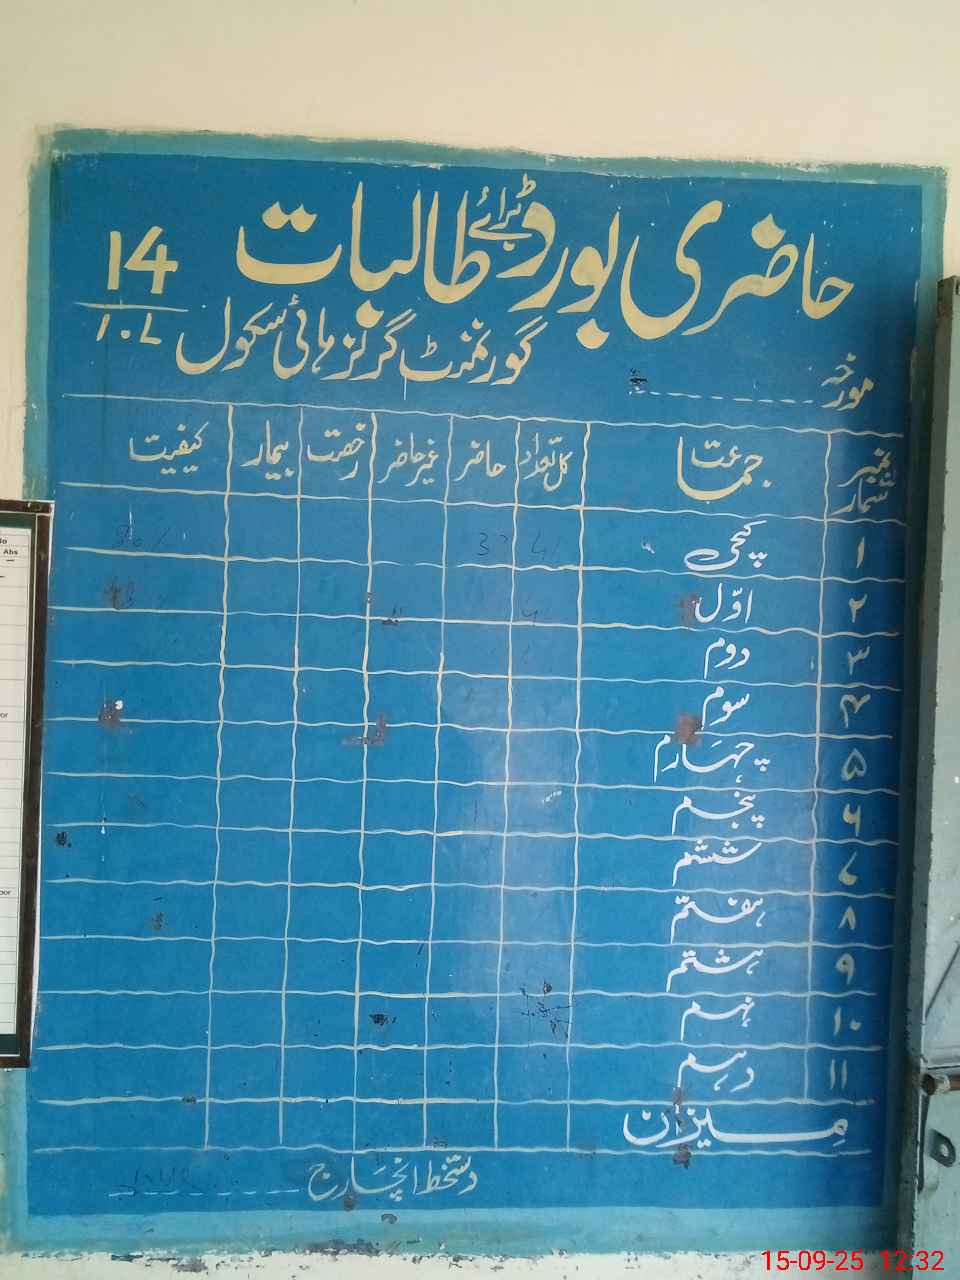 حاضری بورڈ برائے طالبات
14
1.L
گورنمنٹ گرلز ہائی سکول
مورخہ
نمبر شمار جماعت کل تعداد حاضر غیر حاضر رخصت بیمار کیفیت
۱ پکچی
۲ اوّل
۳ دوم
۴ سوم
۵ چہارم
۶ پنجم
۷ ششم
۸ ہفتم
۹ ہشتم
۱۰ نہم
۱۱ دہم
میزان
دستخط انچارج
Abs
15-09-25 12:32